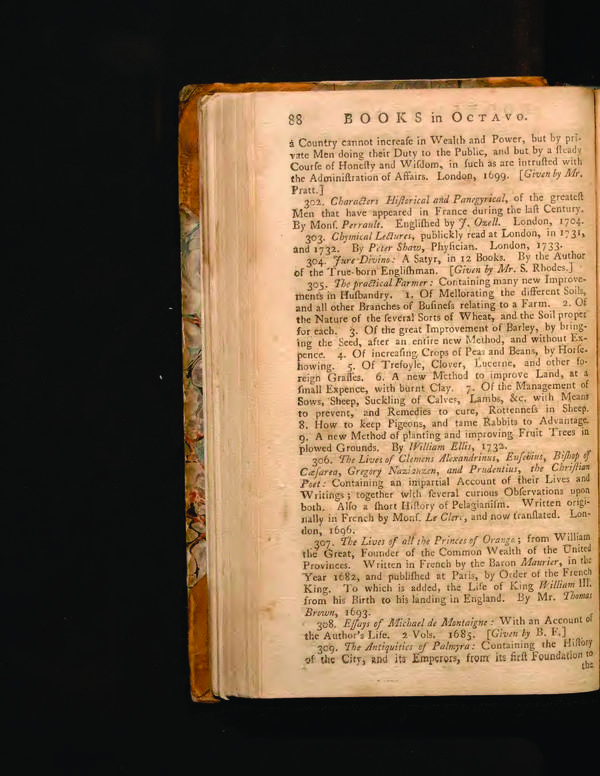 88 BOOKS in OCTAVO.
a Country cannot increaſe in Wealth and Power, but by pri-
vate Men doing their Duty to the Public, and but by a ſteady
Courſe of Honeſty and Wiſdom, in ſuch as are intruſted with
the Adminiſtration of Affairs. London, 1699. [Given by Mr.
Pratt.]
302. Characters Hiſtorical and Panegyrical, of the greateſt
Men that have appeared in France during the laſt Century.
By Monſ. Perrault. Engliſhed by J. Ozell. London, 1704.
303. Chymical Lectures, publickly read at London, in 1731,
and 1732. By Peter Shaw, Phyſician. London, 1733.
304. Jure Divino: A Satyr, in 12 Books. By the Author
of the True-born Engliſhman. [Given by Mr. S. Rhodes.]
305. The practical Farmer: Containing many new Improve-
ments in Huſbandry. 1. Of Mellorating the different Soils,
and all other Branches of Buſineſs relating to a Farm. 2. Of
the Nature of the ſeveral Sorts of Wheat, and the Soil proper
for each. 3. Of the great Improvement of Barley, by bring-
ing the Seed, after an entire new Method, and without Ex-
pence. 4. Of increaſing Crops of Peas and Beans, by Horſe-
howing. 5. Of Trefoyle, Clover, Lucerne, and other fo-
reign Graſſes. 6. A new Method to improve Land, at a
ſmall Expence, with burnt Clay. 7. Of the Management of
Sows, Sheep, Suckling of Calves, Lambs, &c. with Means
to prevent, and Remedies to cure, Rottenneſs in Sheep.
8. How to keep Pigeons, and tame Rabbits to Advantage.
9. A new Method of planting and improving Fruit Trees in
plowed Grounds. By William Ellis, 1732.
306. The Lives of Clemens Alexandrinus, Euſebius, Biſhop of
Cæſarea, Gregory Nazianzen, and Prudentius, the Chriſtian
Poet: Containing an impartial Account of their Lives and
Writings; together with ſeveral curious Obſervations upon
both. Alſo a ſhort Hiſtory of Pelagianiſm. Written origi-
nally in French by Monſ. Le Clerc, and now tranſlated. Lon-
don, 1696.
307. The Lives of all the Princes of Orange; from William
the Great, Founder of the Common Wealth of the United
Provinces. Written in French by the Baron Maurier, in the
Year 1682, and publiſhed at Paris, by Order of the French
King. To which is added, the Life of King William III.
from his Birth to his landing in England. By Mr. Thomas
Brown, 1693.
308. Eſſays of Michael de Montaigne: With an Account of
the Author's Life. 2 Vols. 1685. [Given by B. F.]
309. The Antiquities of Palmyra: Containing the Hiſtory
of the City, and its Emperors, from its firſt Foundation to
the